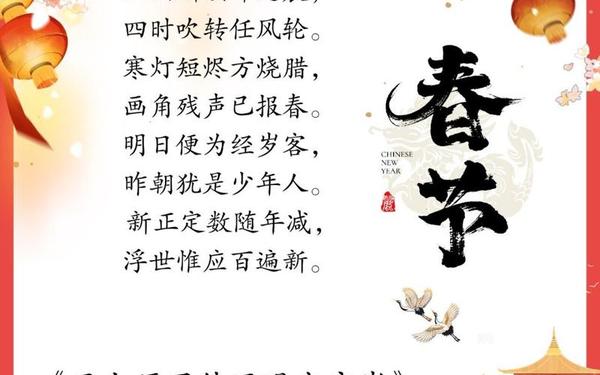 四时吹转任风轮。
寒灯短烬方烧腊，
画角残声已报春。
明日便为经岁客，
昨朝犹是少年人。
新正定数随年减，
浮世惟应百遍新。
春节
CHINESE
NEW
YEAR